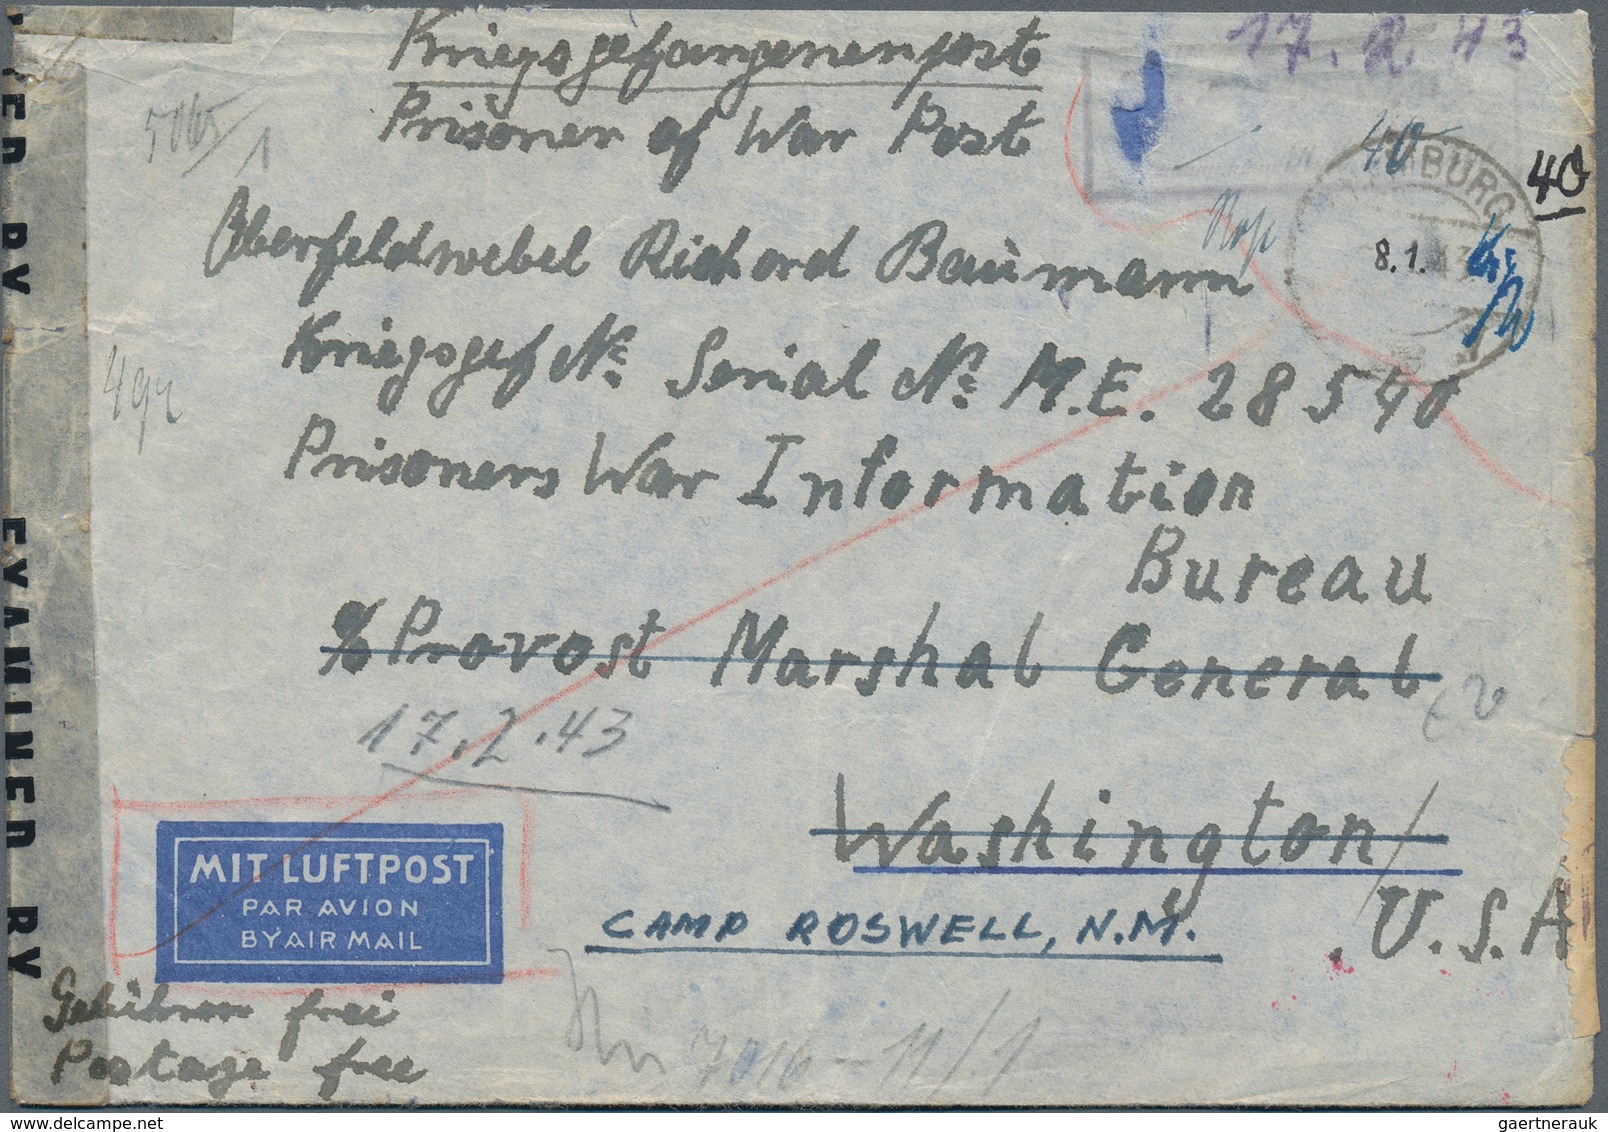 Kriegsgefangenenpost
17.2.43
Prisoner of War Post
5065
1
40
40
BURG
8.1.43
Oberfeldwebel Richard Baumann
Kriegsgef No. Serial No. M.E. 28540
Prisoners War Information
Bureau
c/o Provost Marshal General
17.2.43
Washington/
CAMP ROSWELL, N.M.
U.S.A
MIT LUFTPOST
PAR AVION
BY AIR MAIL
Gebühren frei
Postage free
7016-11/1
EXAMINED BY
gaertnerauk